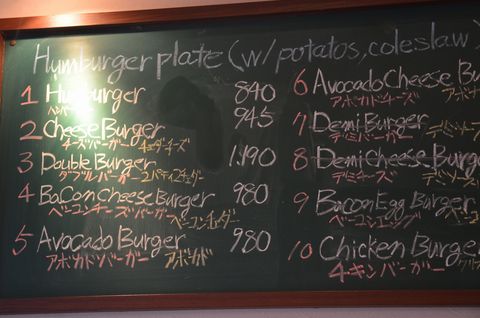 Humburger plate (w/potatos, coleslaw)
1 Humburger 840
2 Cheese Burger 945
チーズバーガー チェダーチーズ
3 Double Burger 1.190
ダブルバーガー 2パティ
4 Bacon Cheese Burger 980
ベーコンチーズバーガー ベーコン
5 Avocado Burger 980
アボカドバーガー アボカド
6 Avocado Cheese Bu
アボカドチーズ アボカ
7 Demi Burger
デミバーガー
8 Demi Cheese Burger
デミチーズ デミソース
9 Bacon Egg Burger
ベーコンエッグ
10 Chicken Burger
チキンバーガー